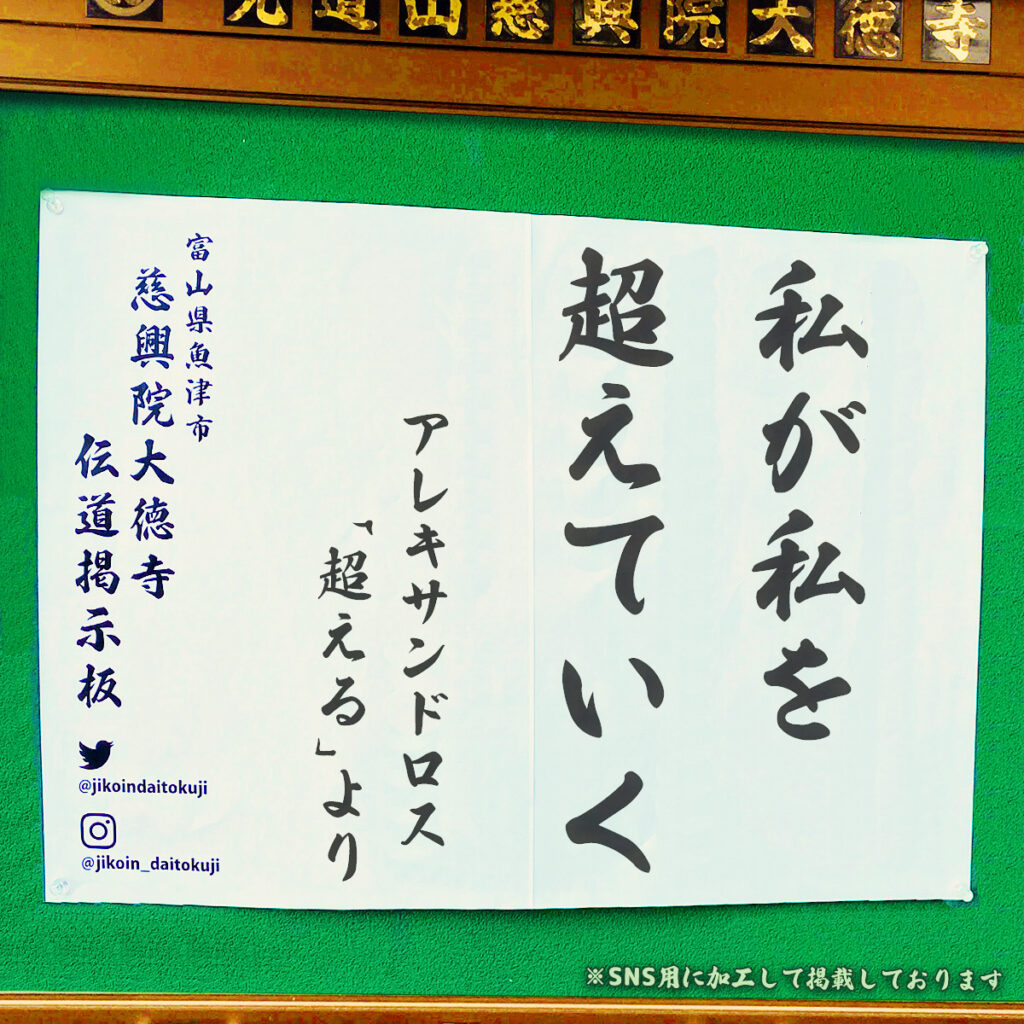 光道山慈興院大徳寺
私が私を
超えていく
アレキサンドロス
「超える」より
富山県魚津市
慈興院大徳寺
伝道掲示板
@jikoindaitokuji
@jikoin_daitokuji
※SNS用に加工して掲載しております